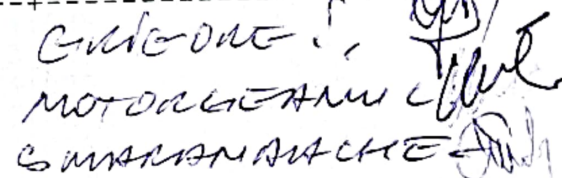 GRIGORE I.,
MOTORGEANU C
SMARANDACHE